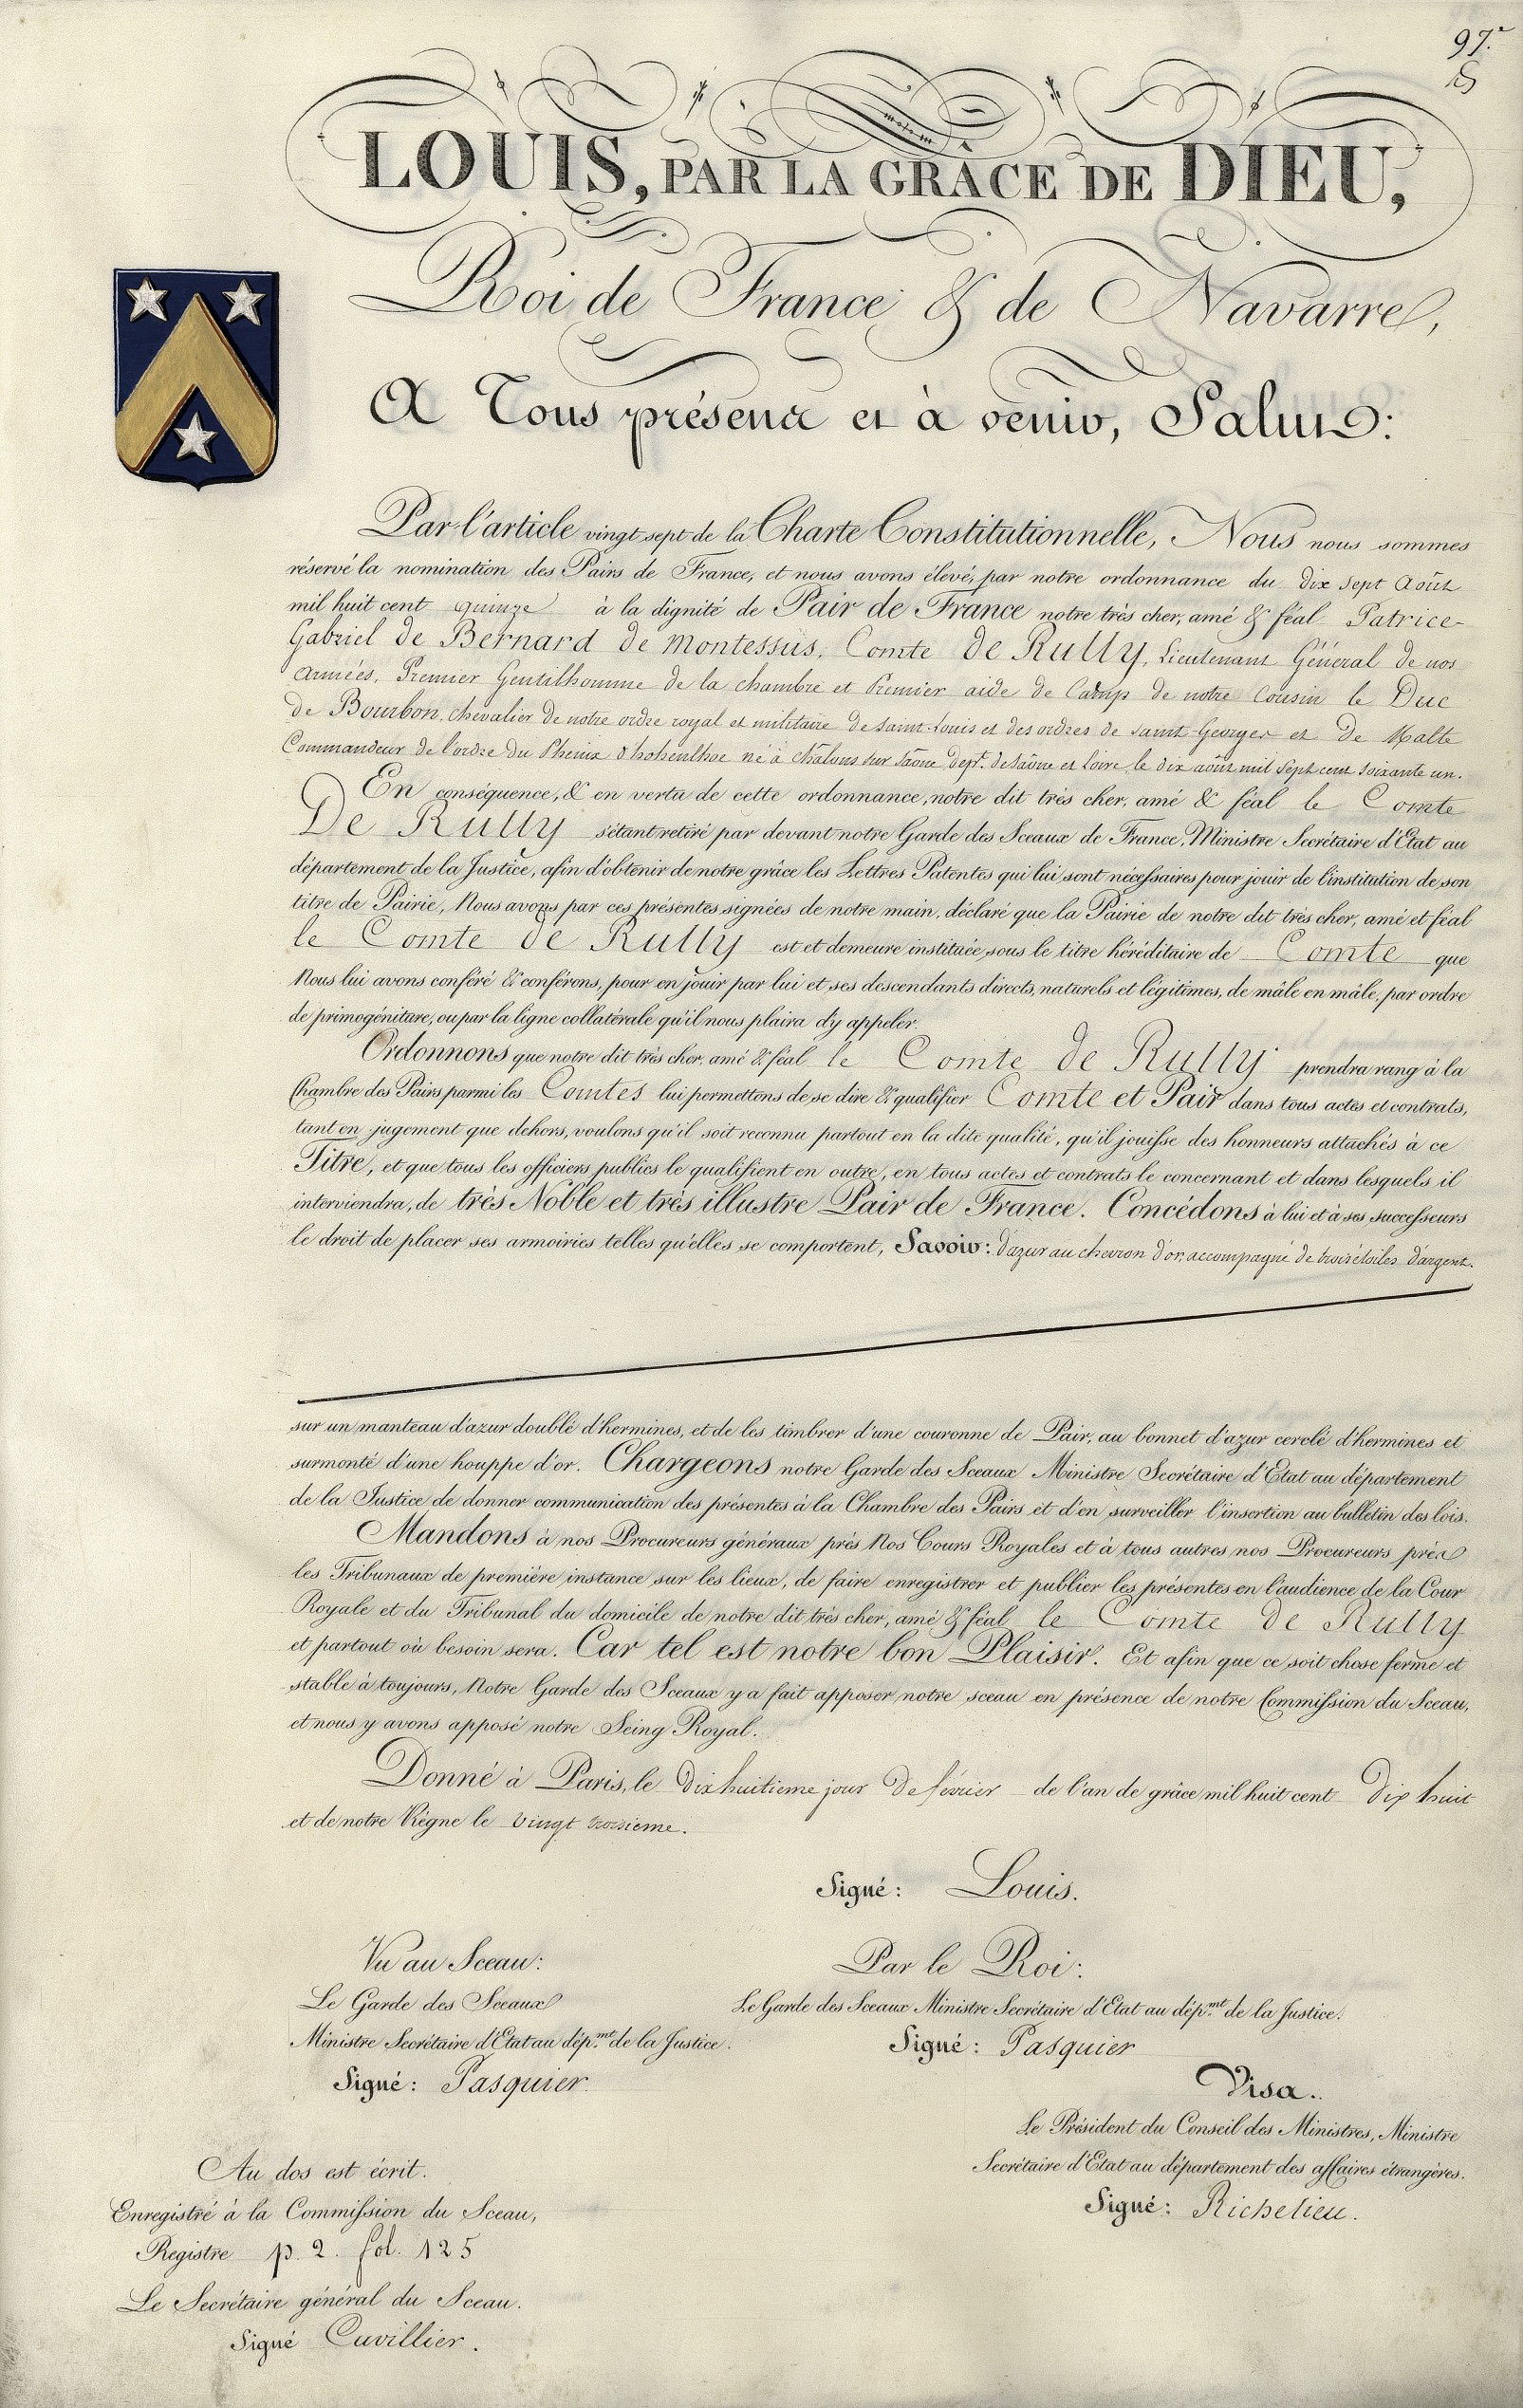 97.e
LOUIS, PAR LA GRÂCE DE DIEU,
Roi de France & de Navarre,
A Tous présens et à venir, Salut:
Par l'article vingt sept de la Charte Constitutionnelle, Nous nous sommes
réservé la nomination des Pairs de France, et nous avons élevé, par notre ordonnance du dix sept Août
mil huit cent quinze à la dignité de Pair de France notre très cher, amé & féal Patrice-
Gabriel de Bernard de Montessus, Comte de Rully, Lieutenant Général de nos
armées, Premier Gentilhomme de la chambre et Premier aide de Camp de notre Cousin le Duc
de Bourbon, chevalier de notre ordre royal et militaire de Saint-Louis et des ordres de Saint-Georges et de Malte
Commandeur de l'ordre du Phenix d'hohenlhoe né à châlons sur Saône dépt. de Saône et Loire le dix août mil sept cent soixante un.
En conséquence, & en vertu de cette ordonnance, notre dit très cher, amé & féal le Comte
De Rully s'étant retiré par devant notre Garde des Sceaux de France, Ministre Secrétaire d'Etat au
département de la Justice, afin d'obtenir de notre grâce les Lettres Patentes qui lui sont nécessaires pour jouir de l'institution de son
titre de Pairie, Nous avons par ces présentes signées de notre main, déclaré que la Pairie de notre dit très cher, amé et féal
le Comte de Rully est et demeure instituée sous le titre héréditaire de Comte que
Nous lui avons conféré & conférons, pour en jouir par lui et ses descendants directs, naturels et légitimes, de mâle en mâle, par ordre
de primogéniture, ou par la ligne collatérale qu'il nous plaira d'y appeler.
Ordonnons que notre dit très cher, amé & féal le Comte de Rully prendra rang à la
Chambre des Pairs parmi les Comtes lui permettons de se dire & qualifier Comte et Pair dans tous actes et contrats,
tant en jugement que dehors, voulons qu'il soit reconnu partout en la dite qualité, qu'il jouisse des honneurs attachés à ce
Titre, et que tous les officiers publics le qualifient en outre, en tous actes et contrats le concernant et dans lesquels il
interviendra, de très Noble et très illustre Pair de France. Concédons à lui et à ses successeurs
le droit de placer ses armoiries telles qu'elles se comportent, Savoir: d'azur au chevron d'or, accompagné de trois étoiles d'argent.
sur un manteau d'azur doublé d'hermines, et de les timbrer d'une couronne de Pair, au bonnet d'azur cerclé d'hermines et
surmonté d'une houppe d'or. Chargeons notre Garde des Sceaux Ministre Secrétaire d'Etat au département
de la Justice de donner communication des présentes à la Chambre des Pairs et d'en surveiller l'insertion au bulletin des lois.
Mandons à nos Procureurs généraux près Nos Cours Royales et à tous autres nos Procureurs près
les Tribunaux de première instance sur les lieux, de faire enregistrer et publier les présentes en l'audience de la Cour
Royale et du Tribunal du domicile de notre dit très cher, amé & féal le Comte de Rully
et partout où besoin sera. Car tel est notre bon Plaisir. Et afin que ce soit chose ferme et
stable à toujours, Notre Garde des Sceaux y a fait apposer notre sceau en présence de notre Commission du Sceau,
et nous y avons apposé notre Seing Royal.
Donné à Paris, le dix huitieme jour de février de l'an de grâce mil huit cent dix huit
et de notre Règne le vingt troisieme.
Signé: Louis.
Vu au Sceau:
Le Garde des Sceaux
Ministre Secrétaire d'Etat au dép.mt de la Justice.
Signé: Pasquier.
Par le Roi:
Le Garde des Sceaux Ministre Secrétaire d'Etat au dép.mt de la Justice.
Signé: Pasquier
Visa.
Le Président du Conseil des Ministres, Ministre
Secrétaire d'Etat au département des affaires étrangères.
Signé: Richelieu.
Au dos est écrit.
Enregistré à la Commission du Sceau,
Registre p. 2. fol. 125
Le Secrétaire général du Sceau.
Signé Cuvillier.